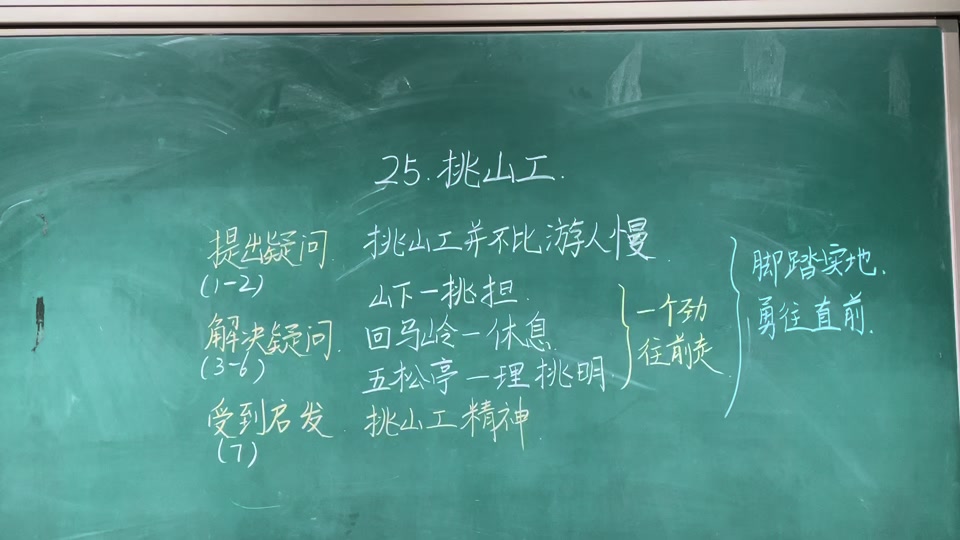 25.挑山工.
提出疑问. 挑山工并不比游人慢.
(1-2)
山下一挑担.
解决疑问. 回马岭一休息.
(3-6)
五松亭一理挑明.
一个劲
往前走
受到启发 挑山工精神.
(7)
脚踏实地.
勇往直前.